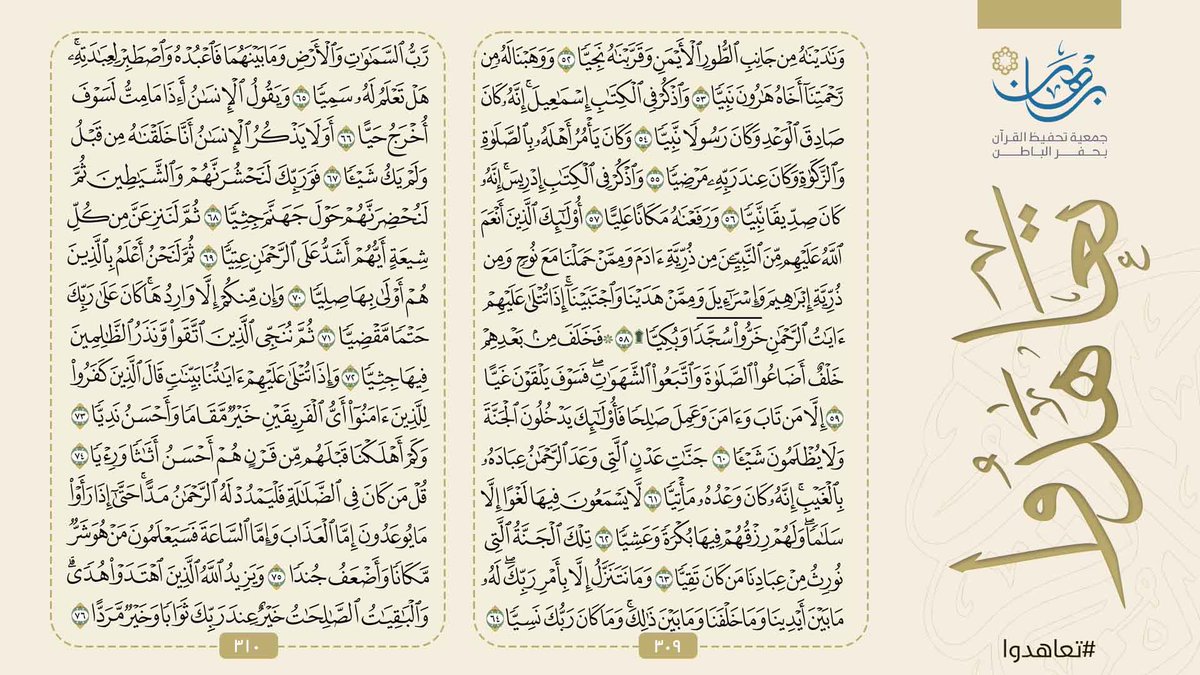 برهان
جمعية تحفيظ القرآن
بحفر الباطن
تعاهدوا
#تعاهدوا
وَنَٰدَيْنَٰهُ مِن جَانِبِ ٱلطُّورِ ٱلْأَيْمَنِ وَقَرَّبْنَٰهُ نَجِيًّا ٥٢ وَوَهَبْنَا لَهُۥ مِن
رَّحْمَتِنَآ أَخَاهُ هَٰرُونَ نَبِيًّا ٥٣ وَٱذْكُرْ فِي ٱلْكِتَٰبِ إِسْمَٰعِيلَۚ إِنَّهُۥ كَانَ
صَادِقَ ٱلْوَعْدِ وَكَانَ رَسُولًا نَّبِيًّا ٥٤ وَكَانَ يَأْمُرُ أَهْلَهُۥ بِٱلصَّلَوٰةِ
وَٱلزَّكَوٰةِ وَكَانَ عِندَ رَبِّهِۦ مَرْضِيًّا ٥٥ وَٱذْكُرْ فِي ٱلْكِتَٰبِ إِدْرِيسَۚ إِنَّهُۥ
كَانَ صِدِّيقًا نَّبِيًّا ٥٦ وَرَفَعْنَٰهُ مَكَانًا عَلِيًّا ٥٧ أُو۟لَٰٓئِكَ ٱلَّذِينَ أَنْعَمَ
ٱللَّهُ عَلَيْهِم مِّنَ ٱلنَّبِيِّـۧنَ مِن ذُرِّيَّةِ ءَادَمَ وَمِمَّنْ حَمَلْنَا مَعَ نُوحٍ وَمِن
ذُرِّيَّةِ إِبْرَٰهِيمَ وَإِسْرَٰٓءِيلَ وَمِمَّنْ هَدَيْنَا وَٱجْتَبَيْنَآۚ إِذَا تُتْلَىٰ عَلَيْهِمْ
ءَايَٰتُ ٱلرَّحْمَٰنِ خَرُّوا۟ سُجَّدًا وَبُكِيًّا ۩ ٥٨ ۞ فَخَلَفَ مِنۢ بَعْدِهِمْ
خَلْفٌ أَضَاعُوا۟ ٱلصَّلَوٰةَ وَٱتَّبَعُوا۟ ٱلشَّهَوَٰتِۖ فَسَوْفَ يَلْقَوْنَ غَيًّا
٥٩ إِلَّا مَن تَابَ وَءَامَنَ وَعَمِلَ صَٰلِحًا فَأُو۟لَٰٓئِكَ يَدْخُلُونَ ٱلْجَنَّةَ
وَلَا يُظْلَمُونَ شَيْـًٔا ٦٠ جَنَّٰتِ عَدْنٍ ٱلَّتِي وَعَدَ ٱلرَّحْمَٰنُ عِبَادَهُۥ
بِٱلْغَيْبِۚ إِنَّهُۥ كَانَ وَعْدُهُۥ مَأْتِيًّا ٦١ لَّا يَسْمَعُونَ فِيهَا لَغْوًا إِلَّا
سَلَٰمًاۖ وَلَهُمْ رِزْقُهُمْ فِيهَا بُكْرَةً وَعَشِيًّا ٦٢ تِلْكَ ٱلْجَنَّةُ ٱلَّتِي
نُورِثُ مِنْ عِبَادِنَا مَن كَانَ تَقِيًّا ٦٣ وَمَا نَتَنَزَّلُ إِلَّا بِأَمْرِ رَبِّكَۖ لَهُۥ
مَا بَيْنَ أَيْدِينَا وَمَا خَلْفَنَا وَمَا بَيْنَ ذَٰلِكَۚ وَمَا كَانَ رَبُّكَ نَسِيًّا ٦٤
٣٠٩
رَّبُّ ٱلسَّمَٰوَٰتِ وَٱلْأَرْضِ وَمَا بَيْنَهُمَا فَٱعْبُدْهُ وَٱصْطَبِرْ لِعِبَٰدَتِهِۦۚ
هَلْ تَعْلَمُ لَهُۥ سَمِيًّا ٦٥ وَيَقُولُ ٱلْإِنسَٰنُ أَءِذَا مَا مِتُّ لَسَوْفَ
أُخْرَجُ حَيًّا ٦٦ أَوَلَا يَذْكُرُ ٱلْإِنسَٰنُ أَنَّا خَلَقْنَٰهُ مِن قَبْلُ
وَلَمْ يَكُ شَيْـًٔا ٦٧ فَوَرَبِّكَ لَنَحْشُرَنَّهُمْ وَٱلشَّيَٰطِينَ ثُمَّ
لَنُحْضِرَنَّهُمْ حَوْلَ جَهَنَّمَ جِثِيًّا ٦٨ ثُمَّ لَنَنزِعَنَّ مِن كُلِّ
شِيعَةٍ أَيُّهُمْ أَشَدُّ عَلَى ٱلرَّحْمَٰنِ عِتِيًّا ٦٩ ثُمَّ لَنَحْنُ أَعْلَمُ بِٱلَّذِينَ
هُمْ أَوْلَىٰ بِهَا صِلِيًّا ٧٠ وَإِن مِّنكُمْ إِلَّا وَارِدُهَاۚ كَانَ عَلَىٰ رَبِّكَ
حَتْمًا مَّقْضِيًّا ٧١ ثُمَّ نُنَجِّي ٱلَّذِينَ ٱتَّقَوا۟ وَّنَذَرُ ٱلظَّٰلِمِينَ
فِيهَا جِثِيًّا ٧٢ وَإِذَا تُتْلَىٰ عَلَيْهِمْ ءَايَٰتُنَا بَيِّنَٰتٍ قَالَ ٱلَّذِينَ كَفَرُوا۟
لِلَّذِينَ ءَامَنُوٓا۟ أَيُّ ٱلْفَرِيقَيْنِ خَيْرٌ مَّقَامًا وَأَحْسَنُ نَدِيًّا ٧٣
وَكَمْ أَهْلَكْنَا قَبْلَهُم مِّن قَرْنٍ هُمْ أَحْسَنُ أَثَٰثًا وَرِءْيًا ٧٤
قُلْ مَن كَانَ فِي ٱلضَّلَٰلَةِ فَلْيَمْدُدْ لَهُ ٱلرَّحْمَٰنُ مَدًّاۚ حَتَّىٰٓ إِذَا رَأَوْا۟
مَا يُوعَدُونَ إِمَّا ٱلْعَذَابَ وَإِمَّا ٱلسَّاعَةَ فَسَيَعْلَمُونَ مَنْ هُوَ شَرٌّ
مَّكَانًا وَأَضْعَفُ جُندًا ٧٥ وَيَزِيدُ ٱللَّهُ ٱلَّذِينَ ٱهْتَدَوْا۟ هُدًىۗ
وَٱلْبَٰقِيَٰتُ ٱلصَّٰلِحَٰتُ خَيْرٌ عِندَ رَبِّكَ ثَوَابًا وَخَيْرٌ مَّرَدًّا ٧٦
٣١٠